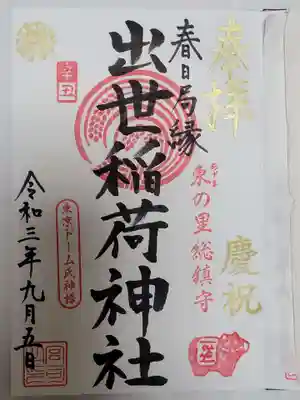 奉拝
慶祝
東の里総鎮守
春日局縁
出世稲荷神社
東京ドーム氏神様
令和三年九月五日